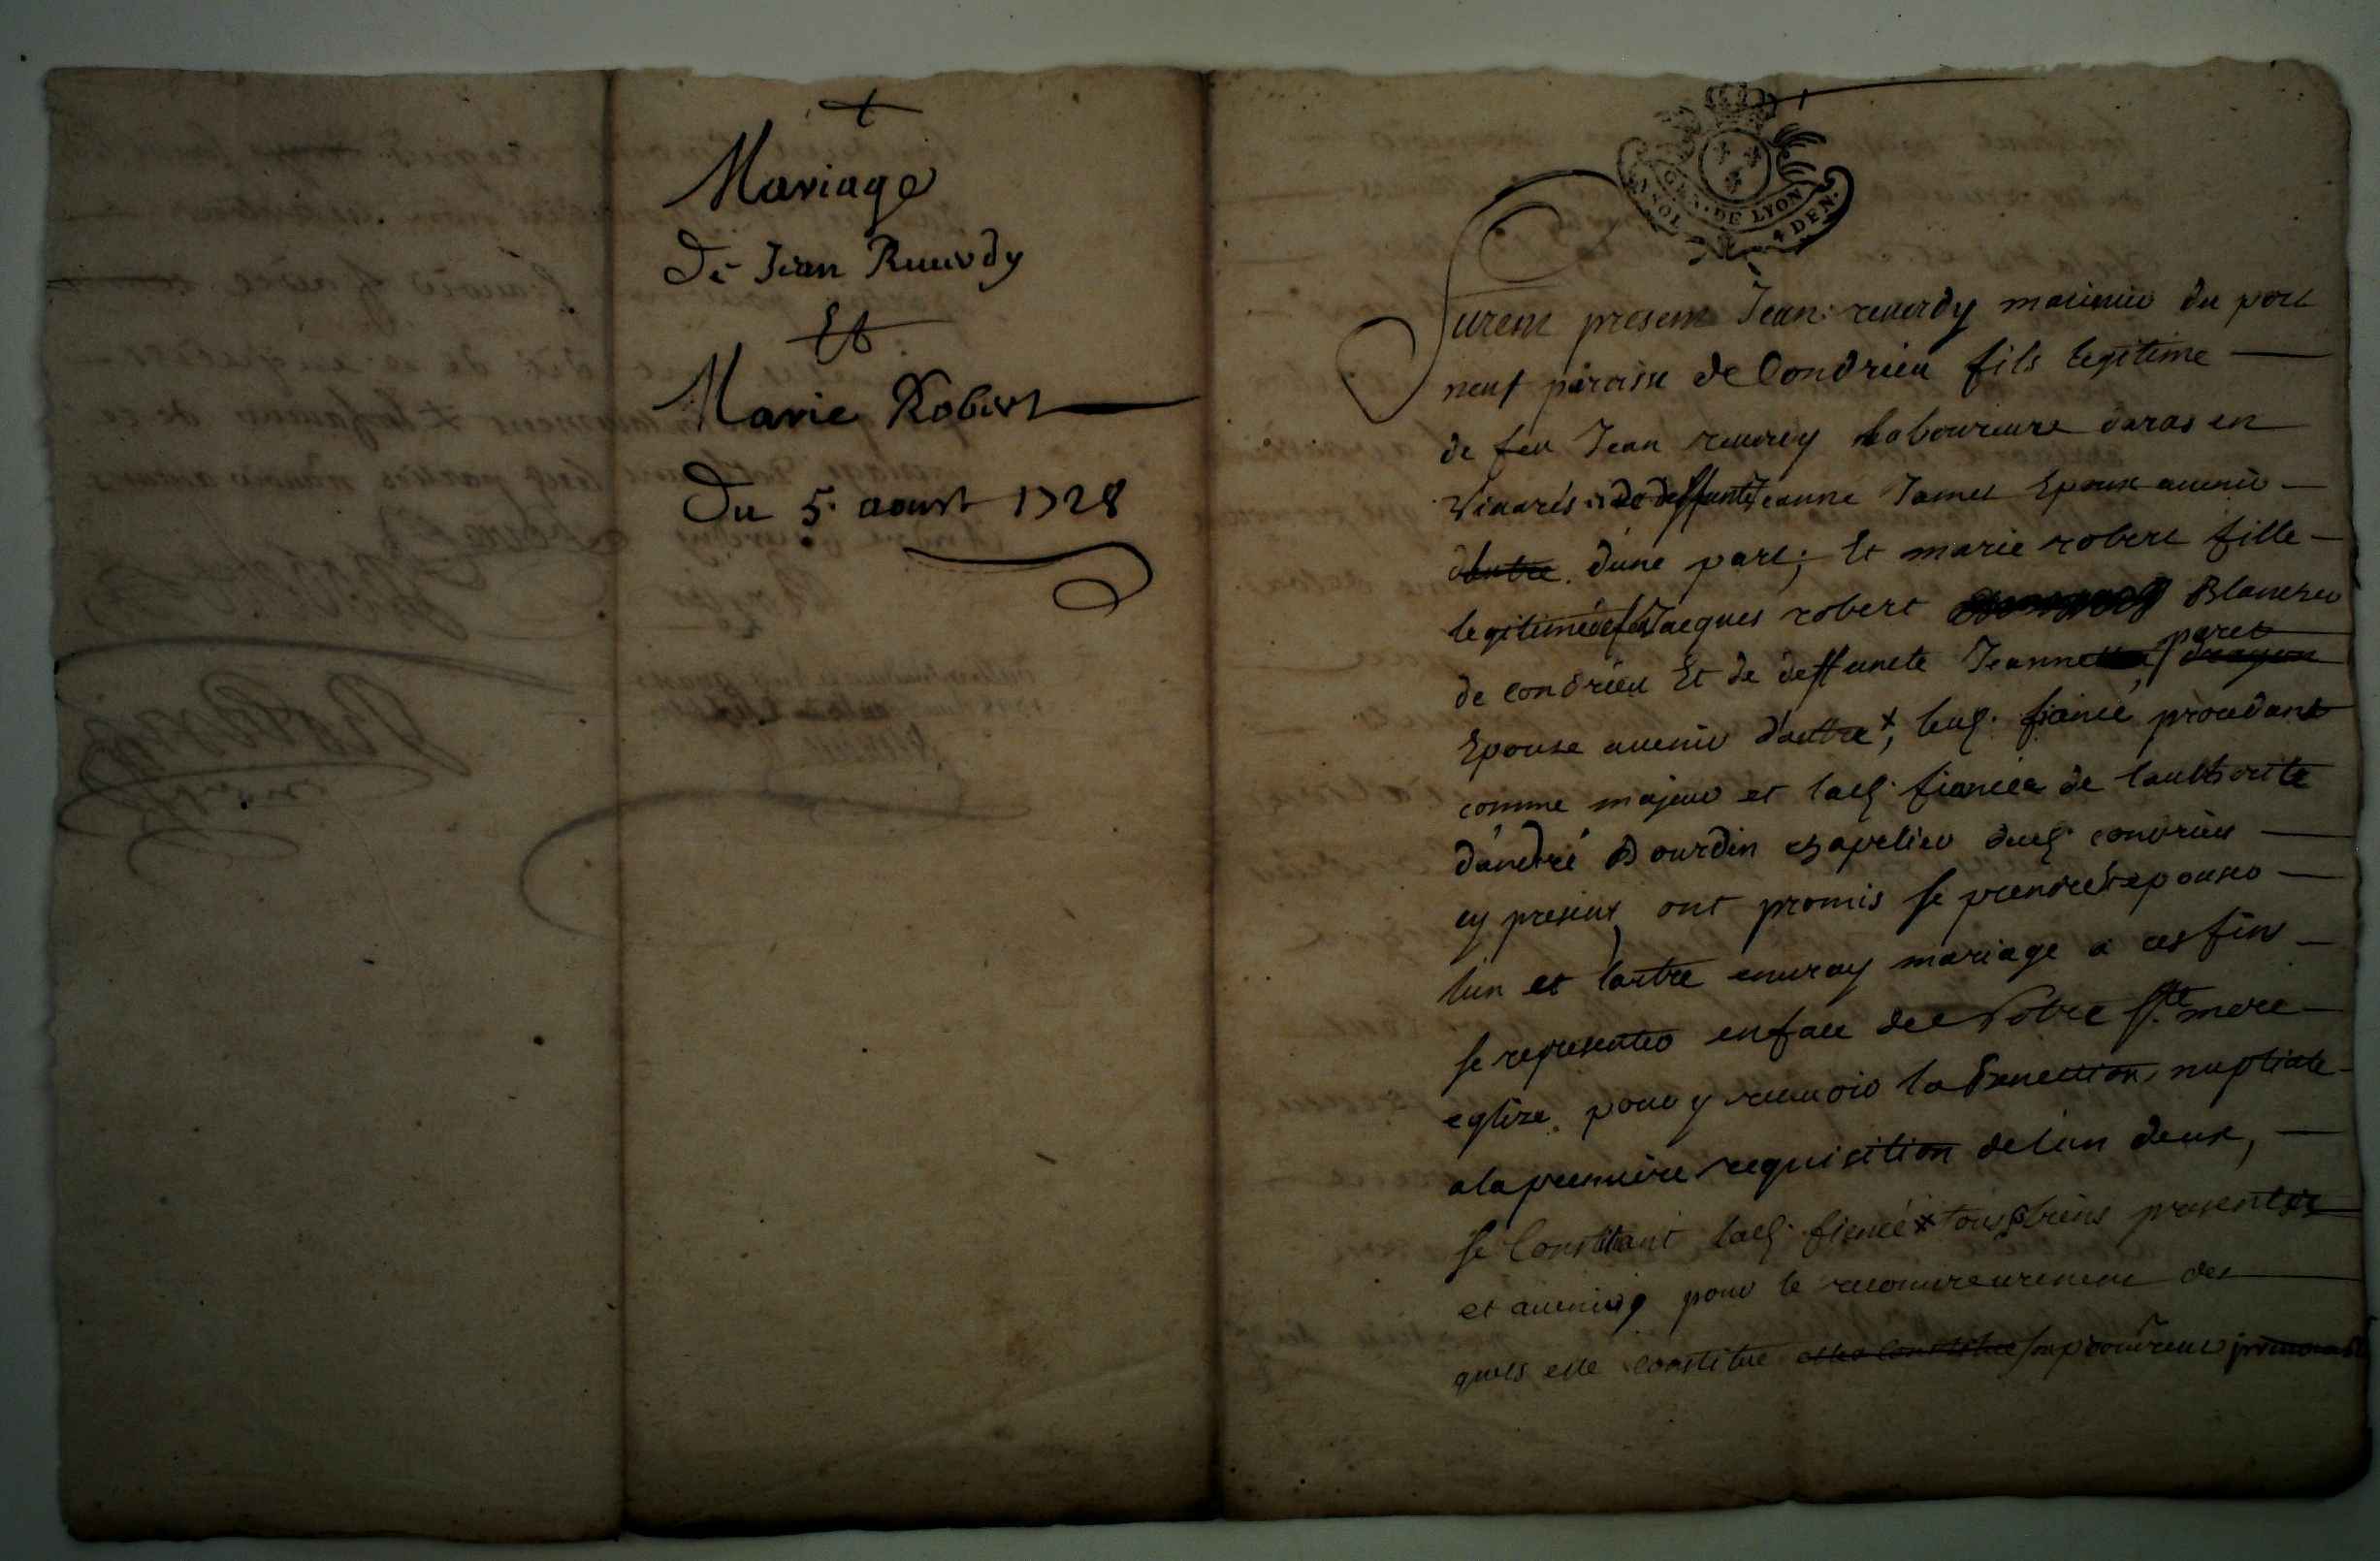 Mariage
De Jean Reuerdy
Et
Marie Robert
Du 5 aoust 1728
GEN. DE LYON
1 SOL 4 DEN.
furent presens Jean reuerdy marinier du port
neuf paroisse de Condrieu fils legitime
de feu Jean reuerdy laboureur daras en
Viuarés et de deffunte Jeanne Jamet Epoux auenir
dautre d'une part, Et marie robert fille
legitime de feu Jacques robert Blancher
de condrieu Et de deffuncte Jeanne paret
dragon
Epouse auenir d'autre, led. fiancé procedant
comme majeur et lad. fiancée de l'authorité
d'andré Bourdin chapelier dud. condrieu
cy present, ont promis se prendre et epouser
lun et lautre en uray mariage a ces fins
se representer en face de Notre Ste mere
eglize pour y receuoir la Benediction nuptiale
a la premiere requisition de lun deux,
se Constituant lad. fiancée tous ses biens presents
et auenir pour le recouurement des
quels elle constitue elle constitue son procureur